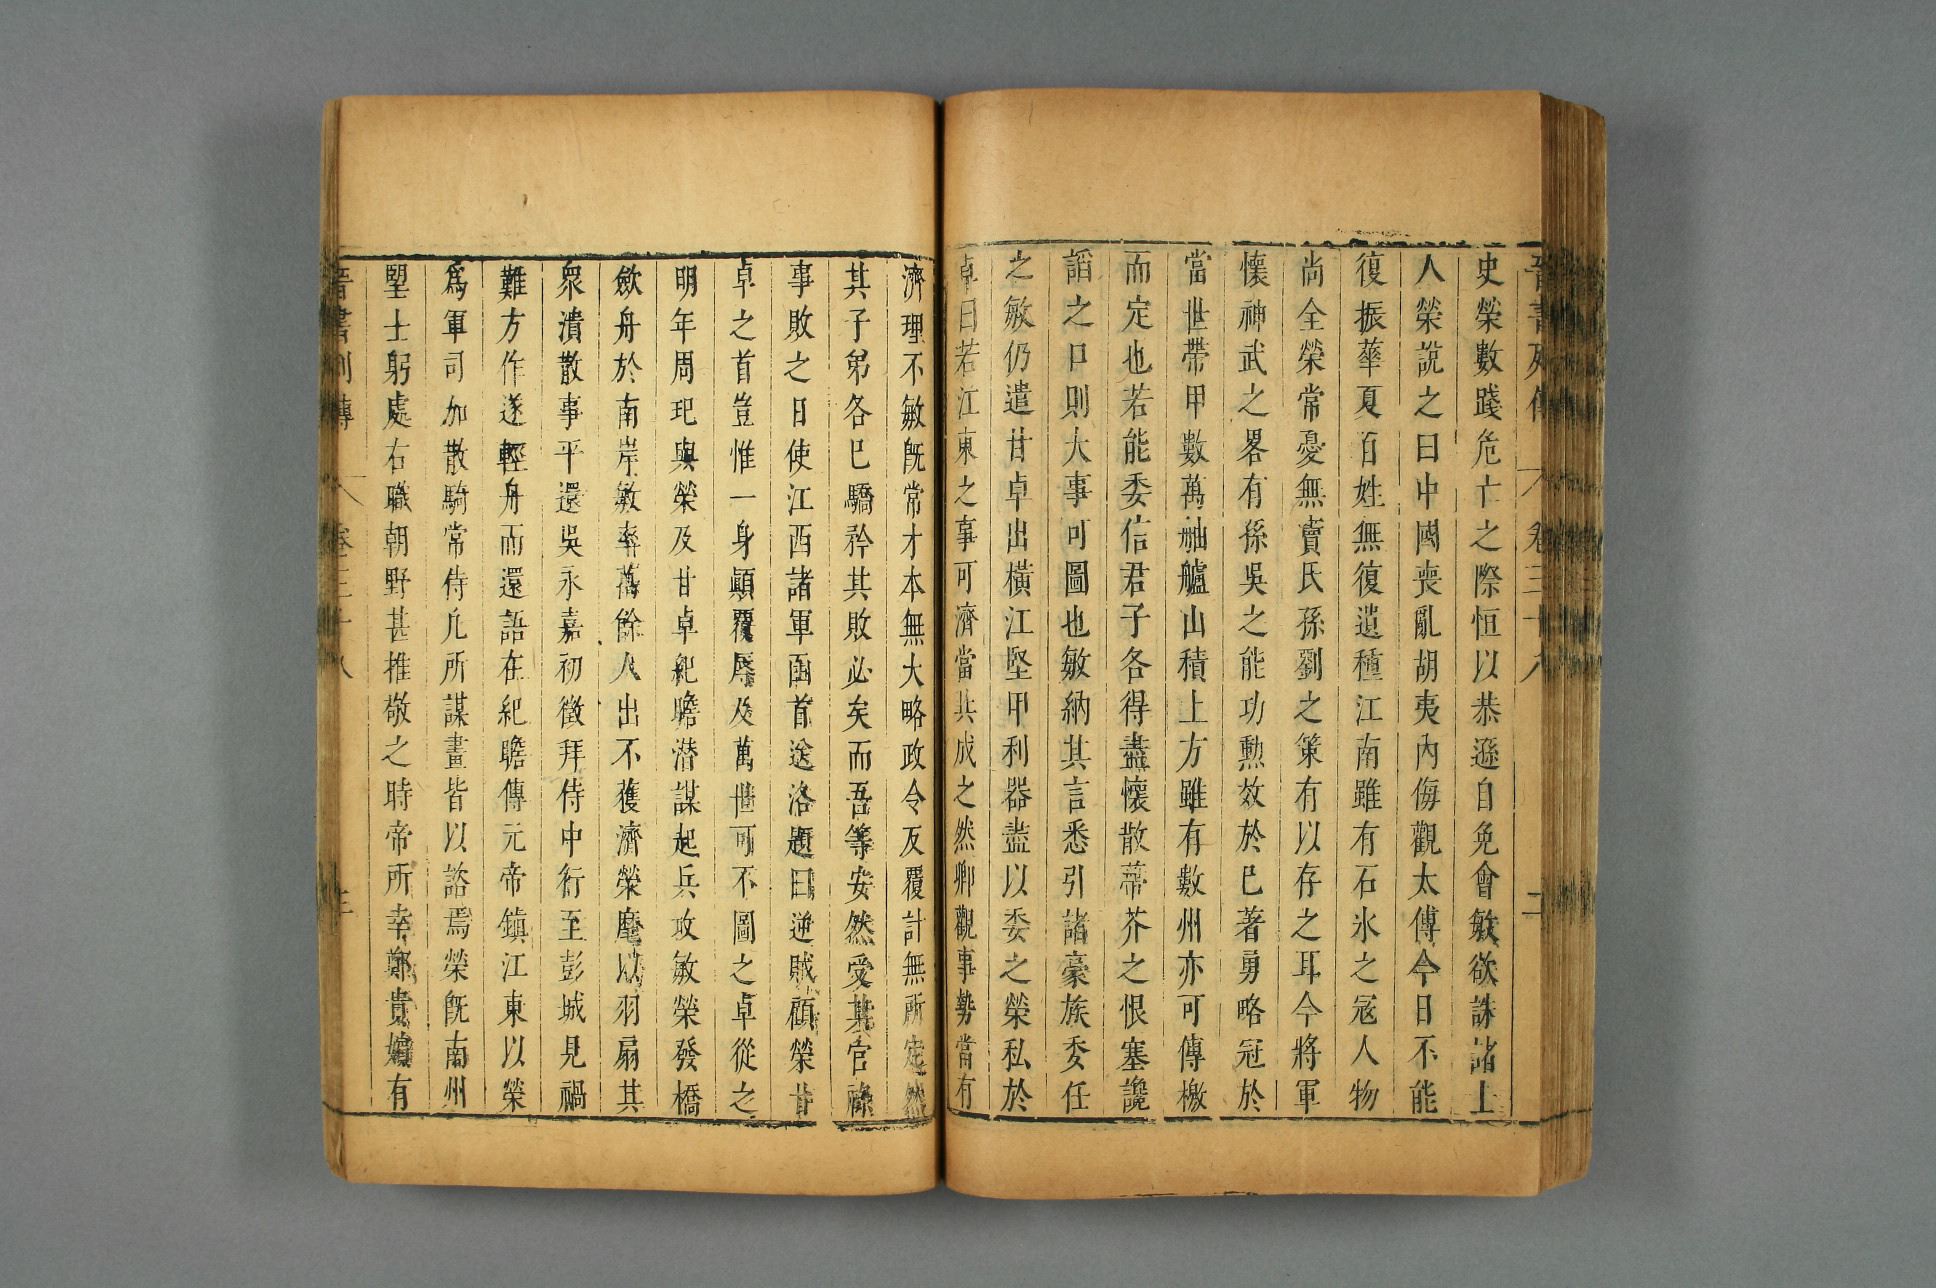 晉書列傳 卷三十八 二
史榮數踐危亡之際恒以恭遜自免會敏欲誅諸士
人榮說之曰中國喪亂胡夷內侮觀太傅今日不能
復振華夏百姓無復遺種江南雖有石氷之寇人物
尚全榮常憂無竇氏孫劉之策有以存之耳今將軍
懷神武之畧有孫吳之能功勲效於巳著勇略冠於
當世帶甲數萬舳艫山積上方雖有數州亦可傳檄
而定也若能委信君子各得盡懷散蔕芥之恨塞讒
謟之口則大事可圖也敏納其言悉引諸豪族委任
之敏仍遣甘卓出橫江堅甲利器盡以委之榮私於
卓曰若江東之事可濟當共成之然卿觀事勢當有
濟理不敏旣常才本無大略政令反覆計無所定然
其子弟各巳驕矜其敗必矣而吾等安然受其官祿
事敗之日使江西諸軍函首送洛題曰逆賊顧榮甘
卓之首豈惟一身顚覆辱及萬世可不圖之卓從之
明年周玘與榮及甘卓紀瞻潛謀起兵攻敏榮發橋
歛舟於南岸敏率萬餘人出不獲濟榮麾以羽扇其
衆潰散事平還吳永嘉初徵拜侍中行至彭城見禍
難方作遂輕舟而還語在紀瞻傳元帝鎮江東以榮
爲軍司加散騎常侍凢所謀畫皆以諮焉榮旣南州
望士躬處右職朝野甚推敬之時帝所幸鄭貴嬪有
晉書列傳 卷三十八 三